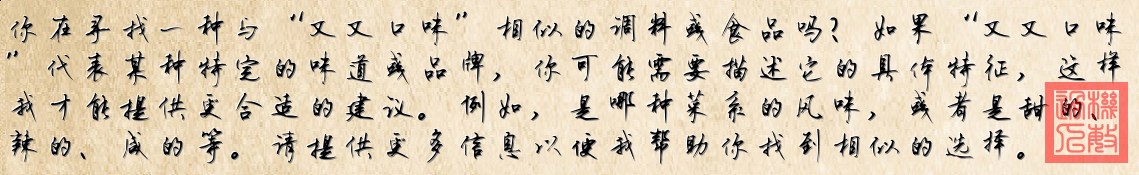 你在寻找一种与“又又口味”相似的调料或食品吗？如果“又又口味
”代表某种特定的味道或品牌，你可能需要描述它的具体特征，这样
我才能提供更合适的建议。例如，是哪种菜系的风味，或者是甜的、
辣的、咸的等。请提供更多信息以便我帮助你找到相似的选择。